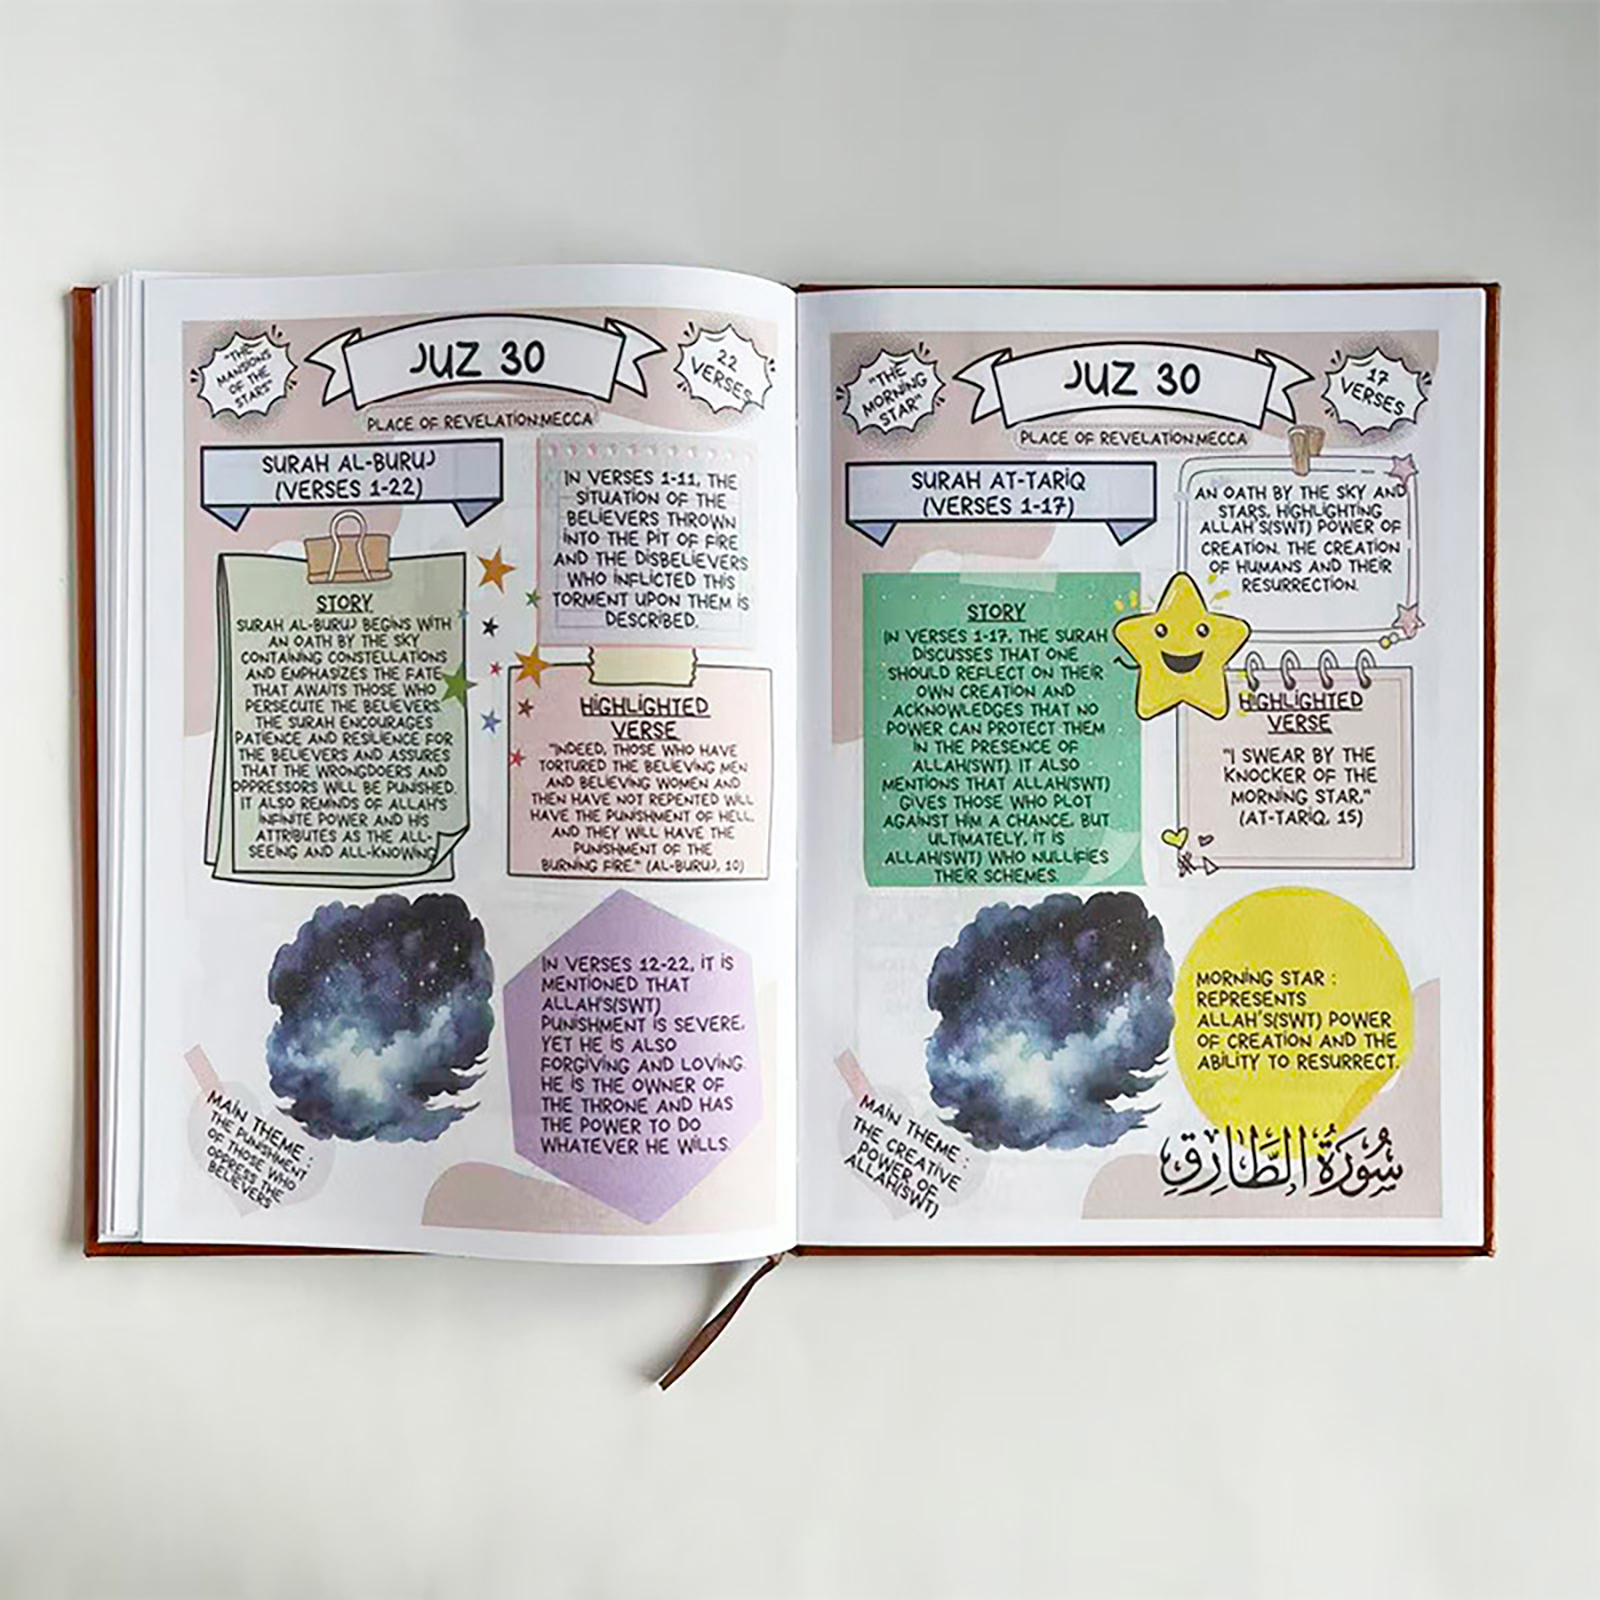 "THE
MANSIONS
OF THE
STARS"
JUZ 30
22
VERSES
PLACE OF REVELATION:MECCA
SURAH AL-BURUJ
(VERSES 1-22)
STORY
SURAH AL-BURUJ BEGINS WITH
AN OATH BY THE SKY
CONTAINING CONSTELLATIONS
AND EMPHASIZES THE FATE
THAT AWAITS THOSE WHO
PERSECUTE THE BELIEVERS.
THE SURAH ENCOURAGES
PATIENCE AND RESILIENCE FOR
THE BELIEVERS AND ASSURES
THAT THE WRONGDOERS AND
OPPRESSORS WILL BE PUNISHED.
IT ALSO REMINDS OF ALLAH'S
INFINITE POWER AND HIS
ATTRIBUTES AS THE ALL-
SEEING AND ALL-KNOWING.
IN VERSES 1-11, THE
SITUATION OF THE
BELIEVERS THROWN
INTO THE PIT OF FIRE
AND THE DISBELIEVERS
WHO INFLICTED THIS
TORMENT UPON THEM IS
DESCRIBED.
HIGHLIGHTED
VERSE
"INDEED, THOSE WHO HAVE
TORTURED THE BELIEVING MEN
AND BELIEVING WOMEN AND
THEN HAVE NOT REPENTED WILL
HAVE THE PUNISHMENT OF HELL,
AND THEY WILL HAVE THE
PUNISHMENT OF THE
BURNING FIRE." (AL-BURUJ, 10)
IN VERSES 12-22, IT IS
MENTIONED THAT
ALLAH'S(SWT)
PUNISHMENT IS SEVERE,
YET HE IS ALSO
FORGIVING AND LOVING.
HE IS THE OWNER OF
THE THRONE AND HAS
THE POWER TO DO
WHATEVER HE WILLS.
MAIN THEME :
THE PUNISHMENT
OF THOSE WHO
OPPRESS THE
BELIEVERS
"THE
MORNING
STAR"
JUZ 30
17
VERSES
PLACE OF REVELATION:MECCA
SURAH AT-TARIQ
(VERSES 1-17)
AN OATH BY THE SKY AND
STARS, HIGHLIGHTING
ALLAH'S(SWT) POWER OF
CREATION. THE CREATION
OF HUMANS AND THEIR
RESURRECTION.
STORY
IN VERSES 1-17, THE SURAH
DISCUSSES THAT ONE
SHOULD REFLECT ON THEIR
OWN CREATION AND
ACKNOWLEDGES THAT NO
POWER CAN PROTECT THEM
IN THE PRESENCE OF
ALLAH(SWT). IT ALSO
MENTIONS THAT ALLAH(SWT)
GIVES THOSE WHO PLOT
AGAINST HIM A CHANCE, BUT
ULTIMATELY, IT IS
ALLAH(SWT) WHO NULLIFIES
THEIR SCHEMES.
HIGHLIGHTED
VERSE
"I SWEAR BY THE
KNOCKER OF THE
MORNING STAR,"
(AT-TARIQ, 15)
MORNING STAR :
REPRESENTS
ALLAH'S(SWT) POWER
OF CREATION AND THE
ABILITY TO RESURRECT.
MAIN THEME :
THE CREATIVE
POWER OF
ALLAH(SWT)
سُورَةُ الطَّارِقِ